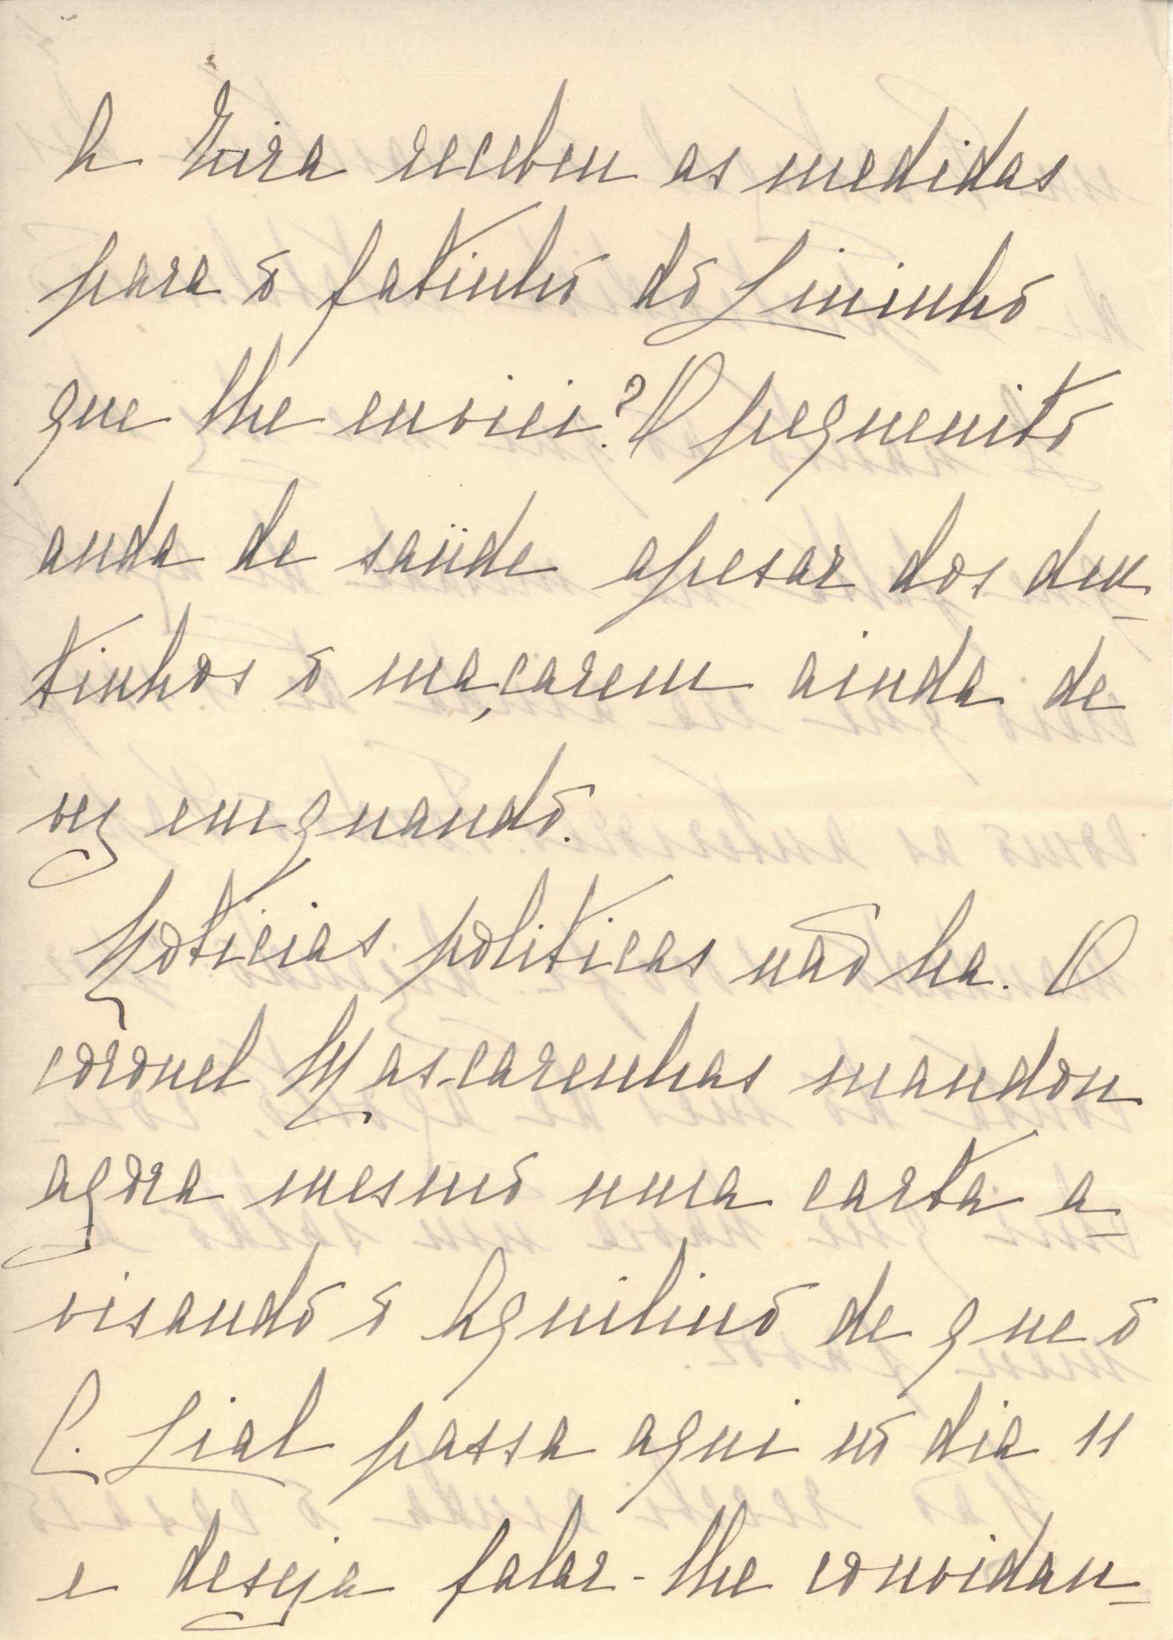 A Zira recebeu as medidas
para o fatinho do Lininho
que lhe enviei? O pequenito
anda de saúde apesar dos den_
tinhos o maçarem ainda de
vez emquando.
Noticias politicas não ha. O
coronel Mascarenhas mandou
agora mesmo uma carta a_
visando o Aquilino de que o
C. Lial passa aqui no dia 11
e deseja falar-lhe convidan_